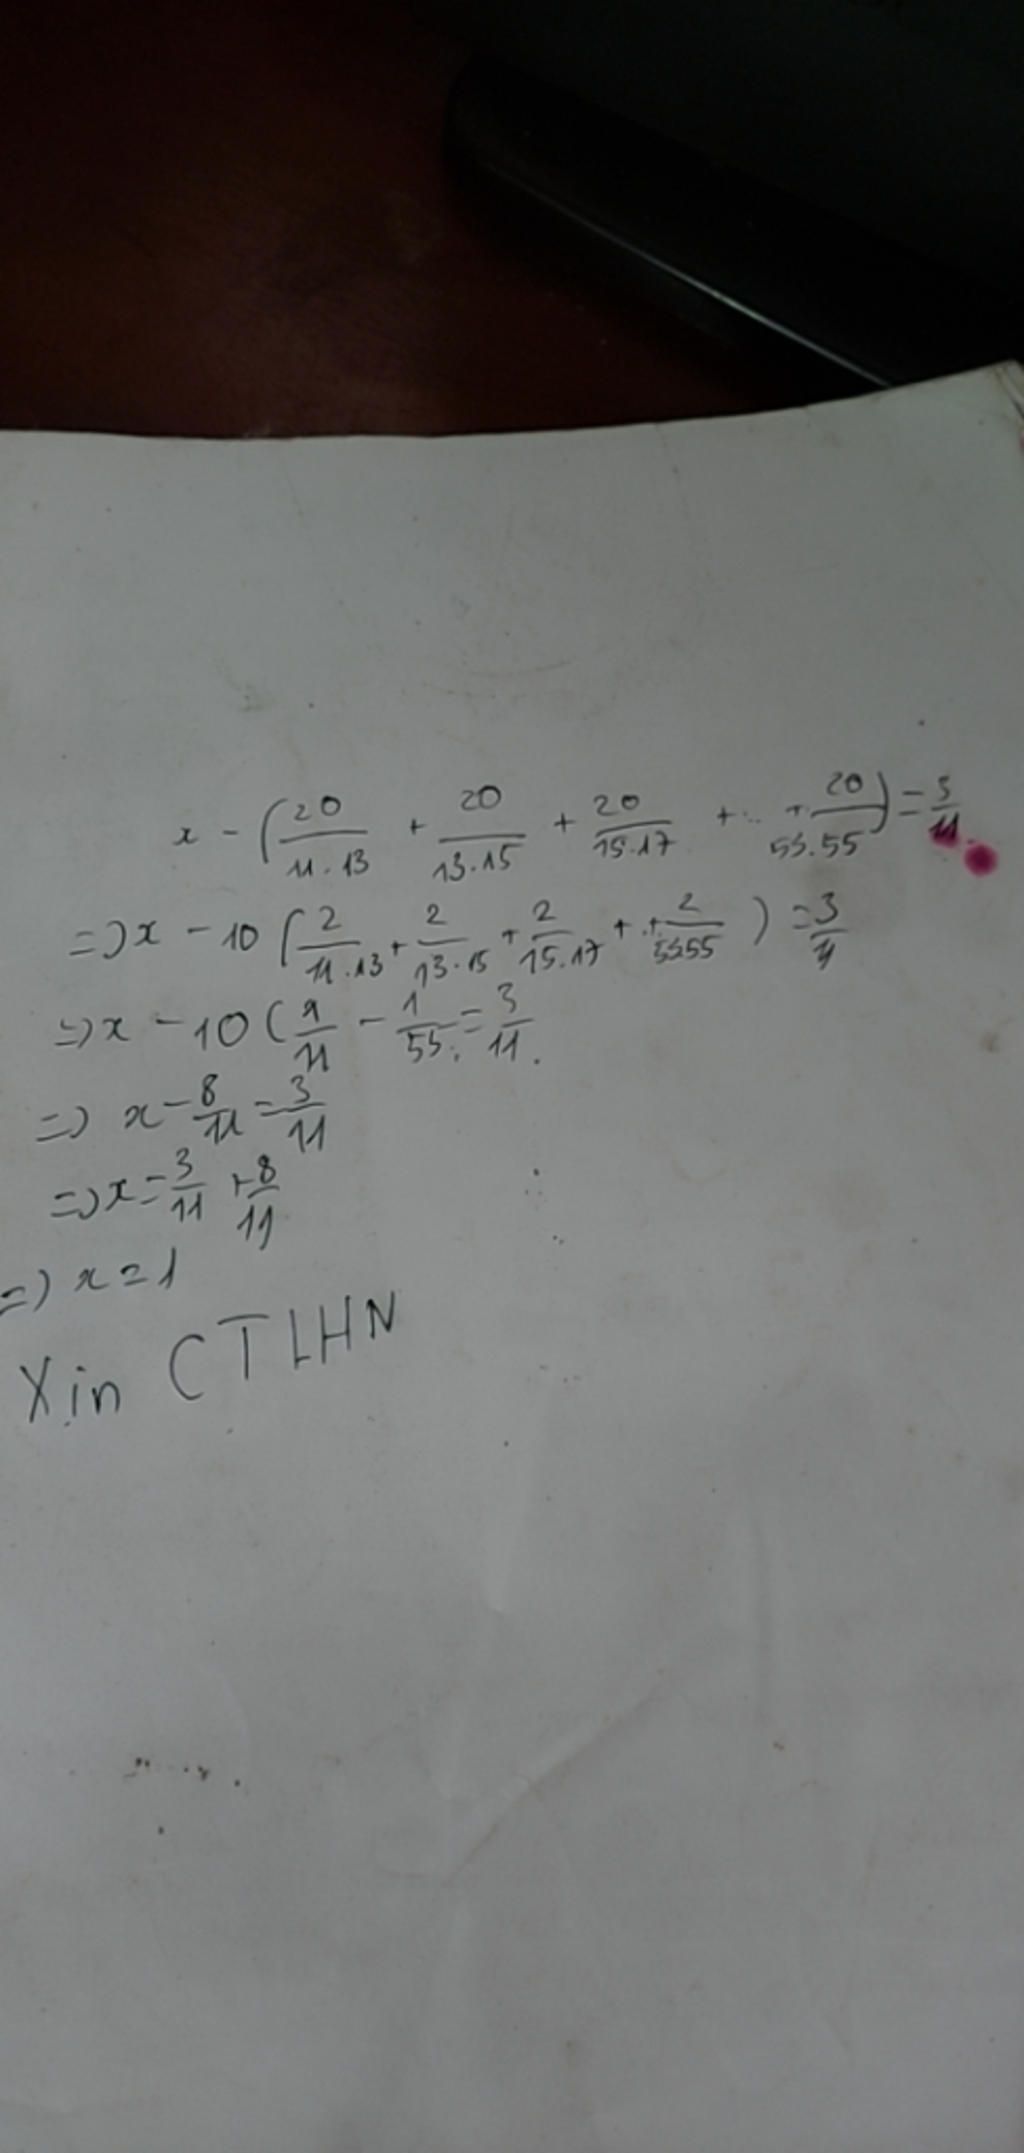 x - (20/11.13 + 20/13.15 + 20/15.17 + ... + 20/53.55) = 3/11
=> x - 10 (2/11.13 + 2/13.15 + 2/15.17 + .. + 2/53.55) = 3/11
=> x - 10 (1/11 - 1/55 = 3/11
=> x - 8/11 = 3/11
=> x = 3/11 + 8/11
=> x = 1
Xin CTLHN